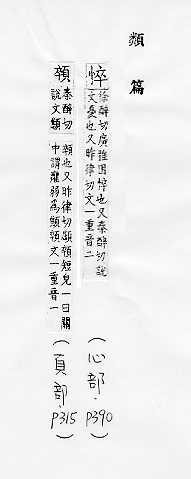 類篇
悴
徐醉切廣雅困悴也又秦醉切說
文憂也又昨律切文一重音二
(心部.P390)
顇
秦醉切
說文顦
顇也又昨律切顇短皃一曰關
中謂羸弱為顦顇文一重音一
(頁部.P315)